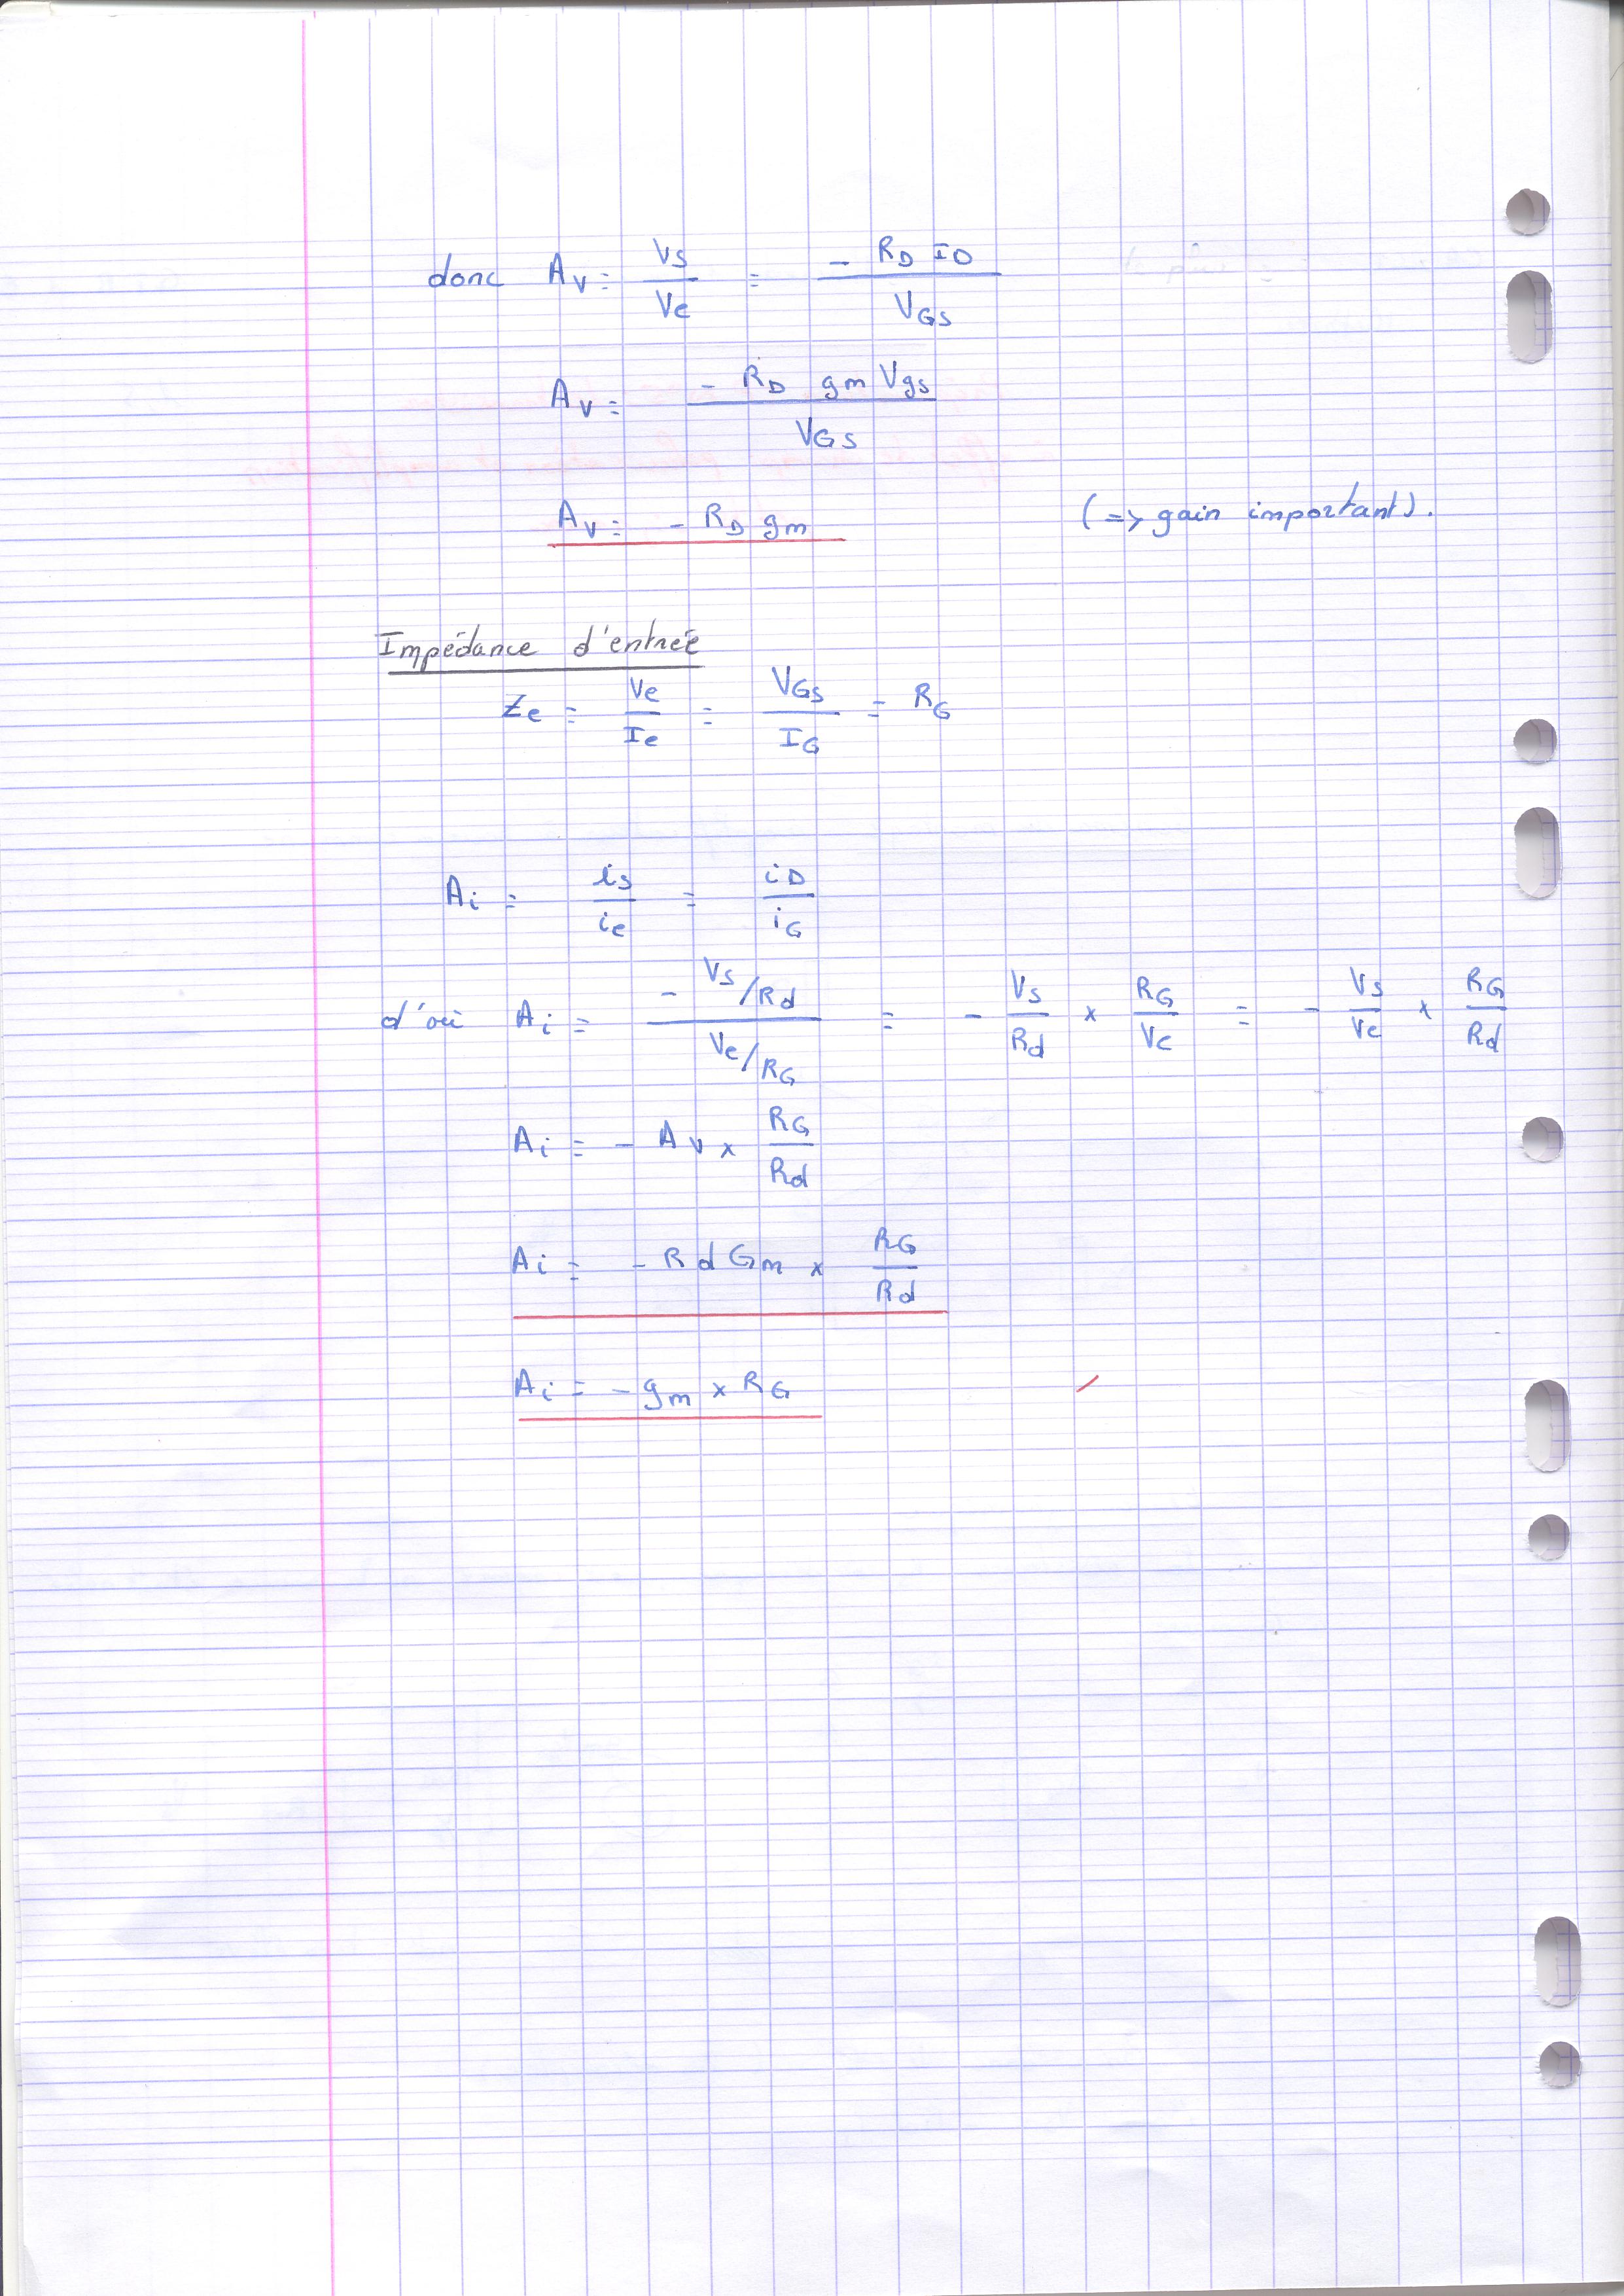 donc Av = Vs / Ve = - RD ID / VGS
Av = - RD gm Vgs / VGS
Av = - RD gm (=> gain important).
Impédance d'entrée
Ze = Ve / Ie = VGS / IG = RG
Ai = is / ie = iD / iG
d'où Ai = - Vs/Rd / Ve/RG = - Vs / Rd x RG / Ve = - Vs / Ve x RG / Rd
Ai = - Av x RG / Rd
Ai = - Rd Gm x RG / Rd
Ai = - gm x RG